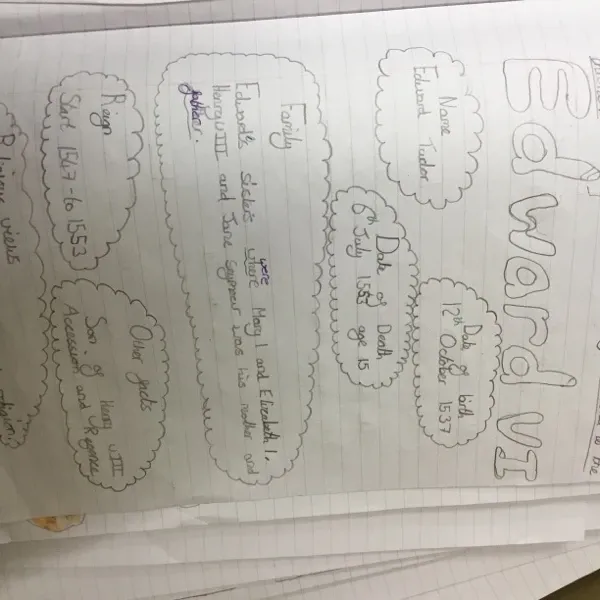 Edward VI
Name
Edward Tudor
Date of birth
12th October 1537
Date of Death
6th July 1553 age 15
Family
Edward's sisters where were Mary I and Elizabeth I.
Henry VIII and Jane Seymour was his mother and
father.
Reign
Start 1547 - to 1553
Other facts
Son of Henry VIII
Accession and Regence
views